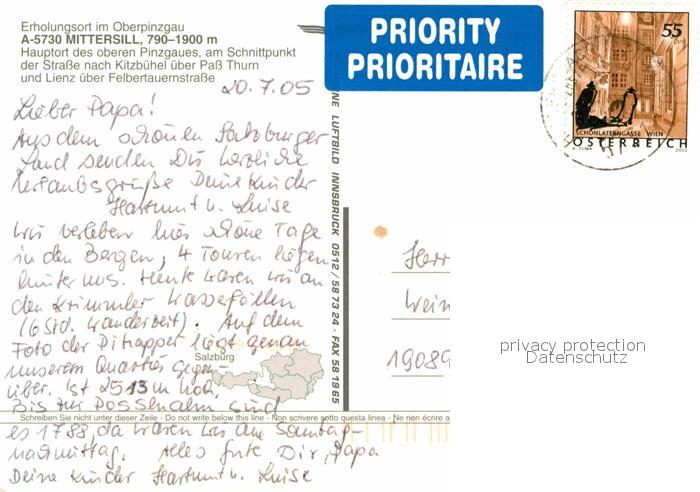 Erholungsort im Oberpinzgau
A-5730 MITTERSILL, 790–1900 m
Hauptort des oberen Pinzgaues, am Schnittpunkt
der Straße nach Kitzbühel über Paß Thurn
und Lienz über Felbertauernstraße
PRIORITY
PRIORITAIRE
55
SCHÖNLATERNGASSE WIEN
ÖSTERREICH
20.7.05
Lieber Papa!
Aus dem schönen Salzburger
Land senden Dir herzliche
Urlaubsgrüße Deine Kinder
Hartmut u. Luise
Wir verleben hier schöne Tage
in den Bergen, 4 Touren liegen
hinter uns. Heute waren wir an
den Krimmler Wasserfällen
(6 Std. Wanderzeit). Auf dem
Foto der Pihapper liegt genau
unserem Quartier gegen
über. Ist 2513 m hoch.
Bis zur Possenalm sind
es 1788, da waren wir am Samstag-
nachmittag. Alles Gute Dir, Papa
Deine Kinder Hartmut u. Luise
Salzburg
Schreiben Sie nicht unter dieser Zeile - Do not write below this line - Non scrivere sotto questa linea - Ne rien écrire a
NE LUFTBILD INNSBRUCK 0512/58 73 24 · FAX 58 19 85
Herr
Wein
19089
privacy protection
Datenschutz